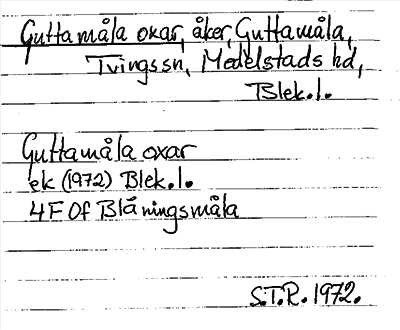 Guttamåla oxar, åker, Guttamåla,
Tvings sn, Medelstads hd,
Blek. l.
Guttamåla oxar
ek (1972) Blek. l.
4F 0f Blåningsmåla
S.T.R. 1972.